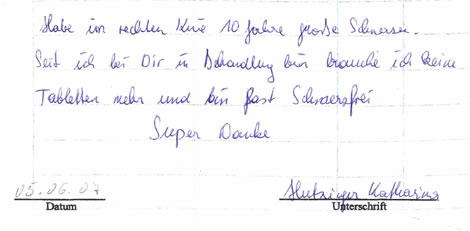 Habe im rechten Knie 10 Jahre große Schmerzen.
Seit ich bei Dir in Behandlung bin brauche ich keine
Tabletten mehr und bin fast Schmerzfrei
Super Danke
05.06.07
Datum
Katharina
Unterschrift